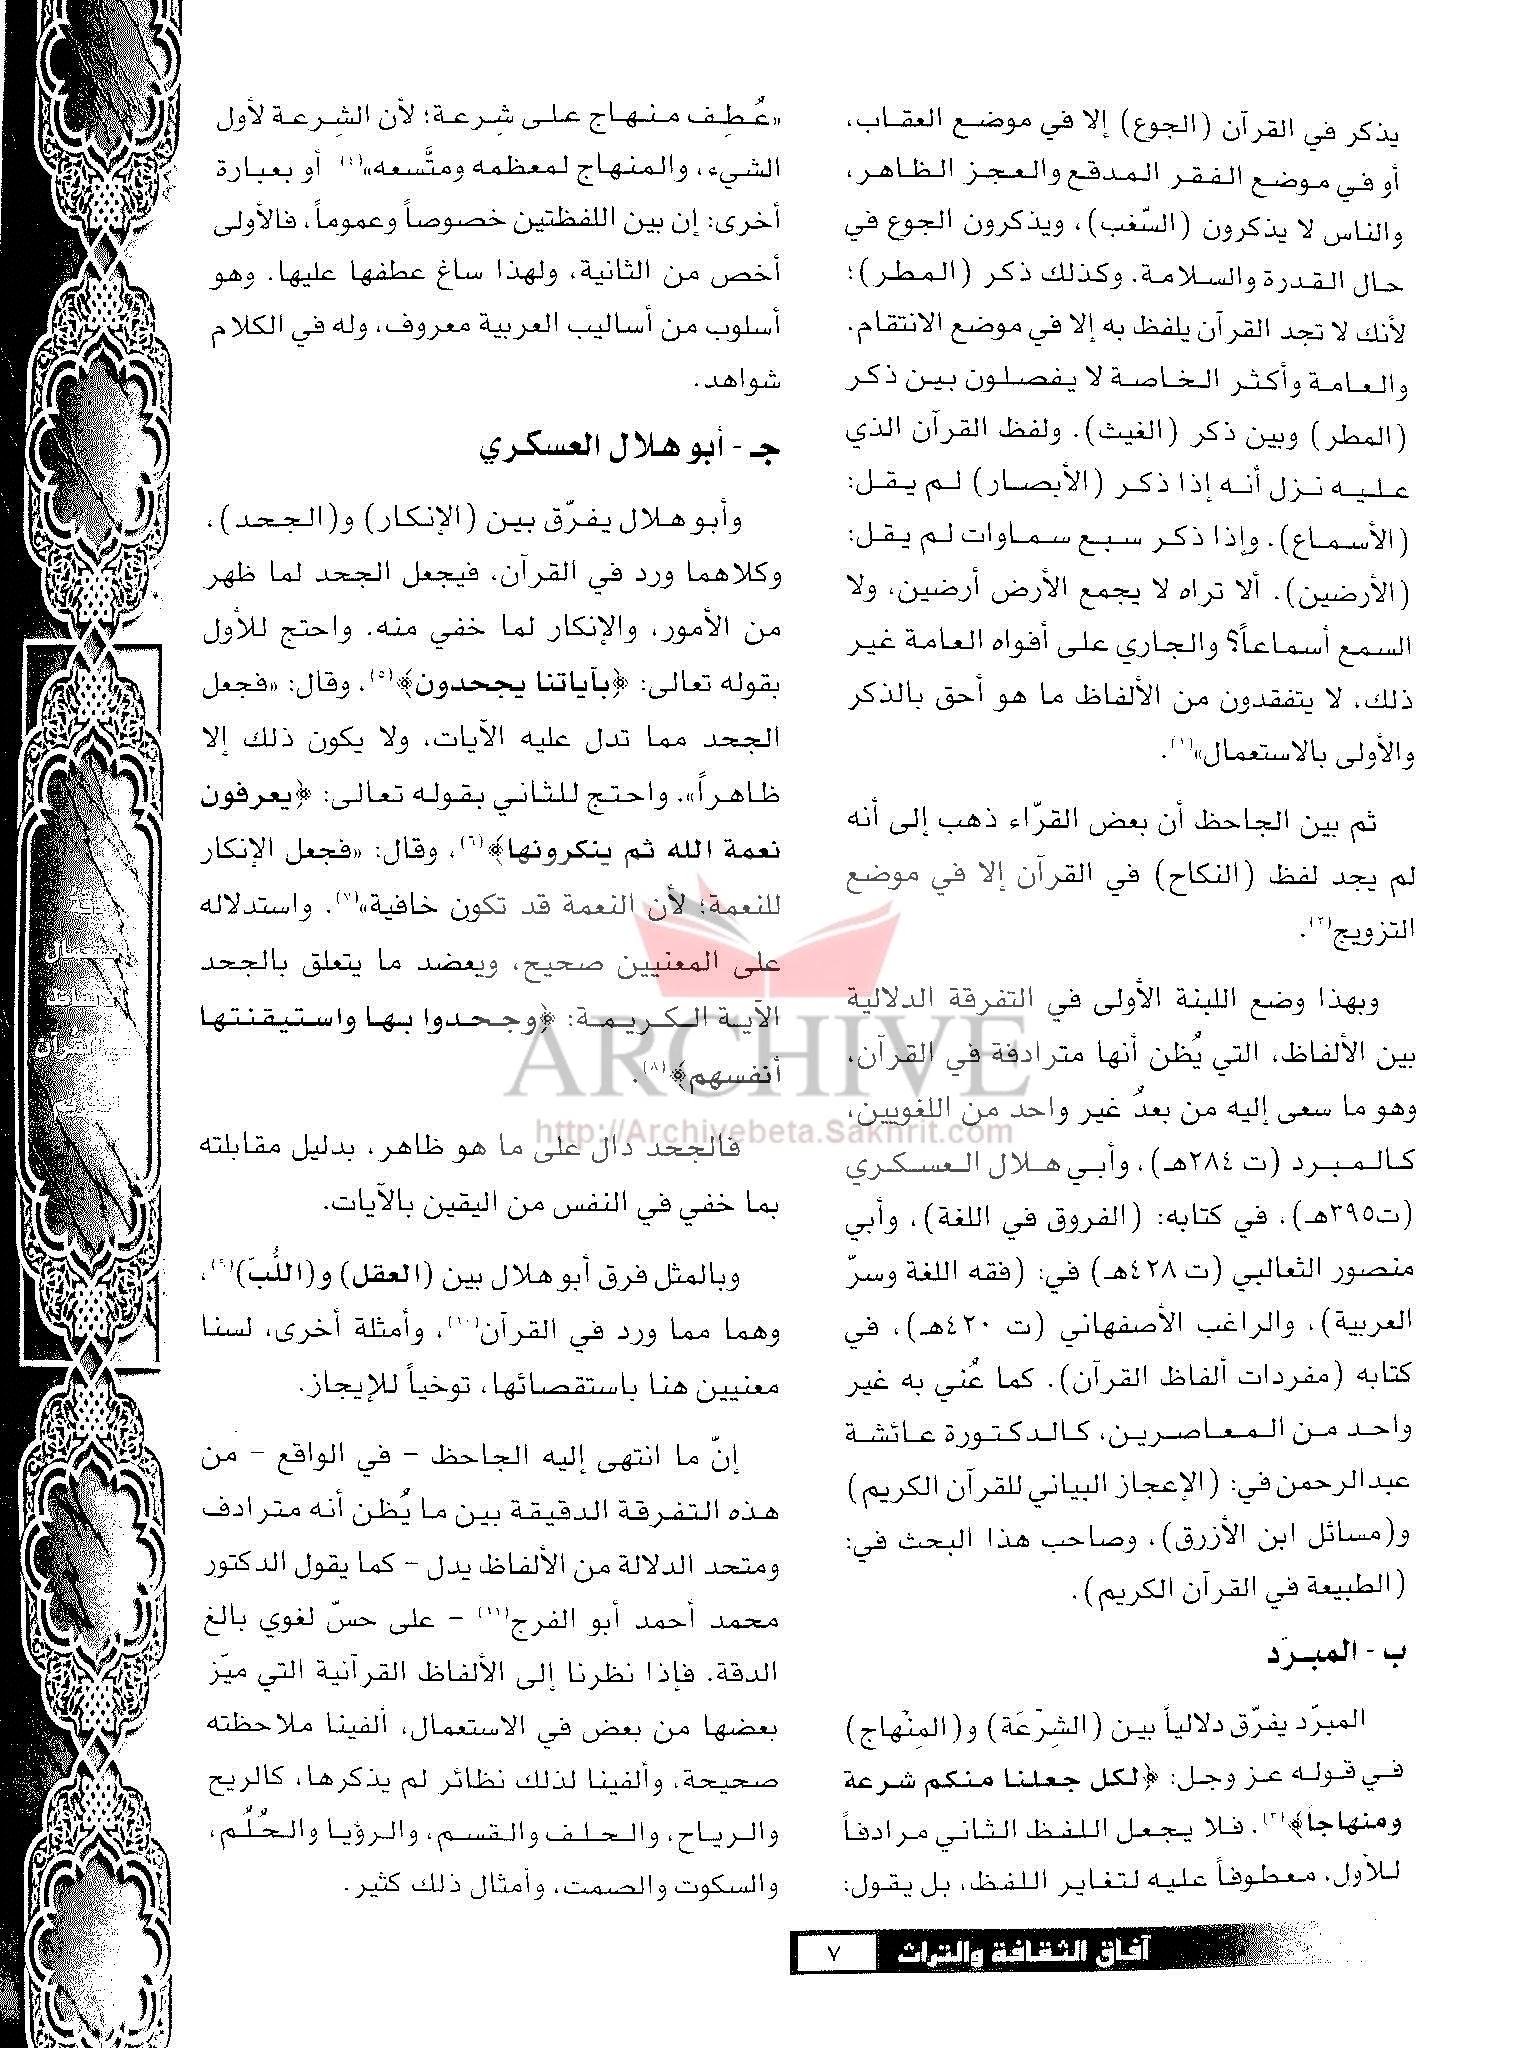 يذكر في القرآن (الجوع) إلا في موضع العقاب،
أو في موضع الفقر المدقع والعجز الظاهر،
والناس لا يذكرون (السّغب)، ويذكرون الجوع في
حال القدرة والسلامة. وكذلك ذكر (المطر)؛
لأنك لا تجد القرآن يلفظ به إلا في موضع الانتقام.
والعامة وأكثر الخاصة لا يفصلون بين ذكر
(المطر) وبين ذكر (الغيث). ولفظ القرآن الذي
عليه نزل أنه إذا ذكر (الأبصار) لم يقل:
(الأسماع). وإذا ذكر سبع سماوات لم يقل:
(الأرضين). ألا تراه لا يجمع الأرض أرضين، ولا
السمع أسماعاً؟ والجاري على أفواه العامة غير
ذلك، لا يتفقدون من الألفاظ ما هو أحق بالذكر
والأولى بالاستعمال»(١).
ثم بين الجاحظ أن بعض القرّاء ذهب إلى أنه
لم يجد لفظ (النكاح) في القرآن إلا في موضع
التزويج(٢).
وبهذا وضع اللبنة الأولى في التفرقة الدلالية
بين الألفاظ، التي يُظن أنها مترادفة في القرآن،
وهو ما سعى إليه من بعدُ غير واحد من اللغويين،
كالمبرد (ت ٢٨٤هـ)، وأبي هلال العسكري
(ت٣٩٥هـ)، في كتابه: (الفروق في اللغة)، وأبي
منصور الثعالبي (ت ٤٢٨هـ) في: (فقه اللغة وسرّ
العربية)، والراغب الأصفهاني (ت ٤٢٠هـ)، في
كتابه (مفردات ألفاظ القرآن). كما عُني به غير
واحد من المعاصرين، كالدكتورة عائشة
عبدالرحمن في: (الإعجاز البياني للقرآن الكريم)
و(مسائل ابن الأزرق)، وصاحب هذا البحث في:
(الطبيعة في القرآن الكريم).
ب - المبرّد
المبرّد يفرّق دلالياً بين (الشِرْعَة) و(المِنْهاج)
في قوله عز وجل: ﴿لكل جعلنا منكم شرعة
ومنهاجاً﴾(٣). فلا يجعل اللفظ الثاني مرادفاً
للأول، معطوفاً عليه لتغاير اللفظ، بل يقول:
«عُطِف منهاج على شِرعة؛ لأن الشِرعة لأول
الشيء، والمنهاج لمعظمه ومتَّسعه»(٤) أو بعبارة
أخرى: إن بين اللفظتين خصوصاً وعموماً، فالأولى
أخص من الثانية، ولهذا ساغ عطفها عليها. وهو
أسلوب من أساليب العربية معروف، وله في الكلام
شواهد.
جـ - أبو هلال العسكري
وأبو هلال يفرّق بين (الإنكار) و(الجحد)،
وكلاهما ورد في القرآن، فيجعل الجحد لما ظهر
من الأمور، والإنكار لما خفي منه. واحتج للأول
بقوله تعالى: ﴿بآياتنا يجحدون﴾(٥)، وقال: «فجعل
الجحد مما تدل عليه الآيات، ولا يكون ذلك إلا
ظاهراً». واحتج للثاني بقوله تعالى: ﴿يعرفون
نعمة الله ثم ينكرونها﴾(٦)، وقال: «فجعل الإنكار
للنعمة؛ لأن النعمة قد تكون خافية»(٧). واستدلاله
على المعنيين صحيح، ويعضد ما يتعلق بالجحد
الآية الكريمة: ﴿وجحدوا بها واستيقنتها
أنفسهم﴾(٨).
فالجحد دال على ما هو ظاهر، بدليل مقابلته
بما خفي في النفس من اليقين بالآيات.
وبالمثل فرق أبو هلال بين (العقل) و(اللُّبّ)(٩)،
وهما مما ورد في القرآن(١٠)، وأمثلة أخرى، لسنا
معنيين هنا باستقصائها، توخياً للإيجاز.
إنّ ما انتهى إليه الجاحظ - في الواقع - من
هذه التفرقة الدقيقة بين ما يُظن أنه مترادف
ومتحد الدلالة من الألفاظ يدل - كما يقول الدكتور
محمد أحمد أبو الفرج(١١) - على حسّ لغوي بالغ
الدقة. فإذا نظرنا إلى الألفاظ القرآنية التي ميّز
بعضها من بعض في الاستعمال، ألفينا ملاحظته
صحيحة، وألفينا لذلك نظائر لم يذكرها، كالريح
والرياح، والحلف والقسم، والرؤيا والحُلُم،
والسكوت والصمت، وأمثال ذلك كثير.
ARCHIVE
http://Archivebeta.Sakhrit.com
آفاق الثقافة والتراث
٧